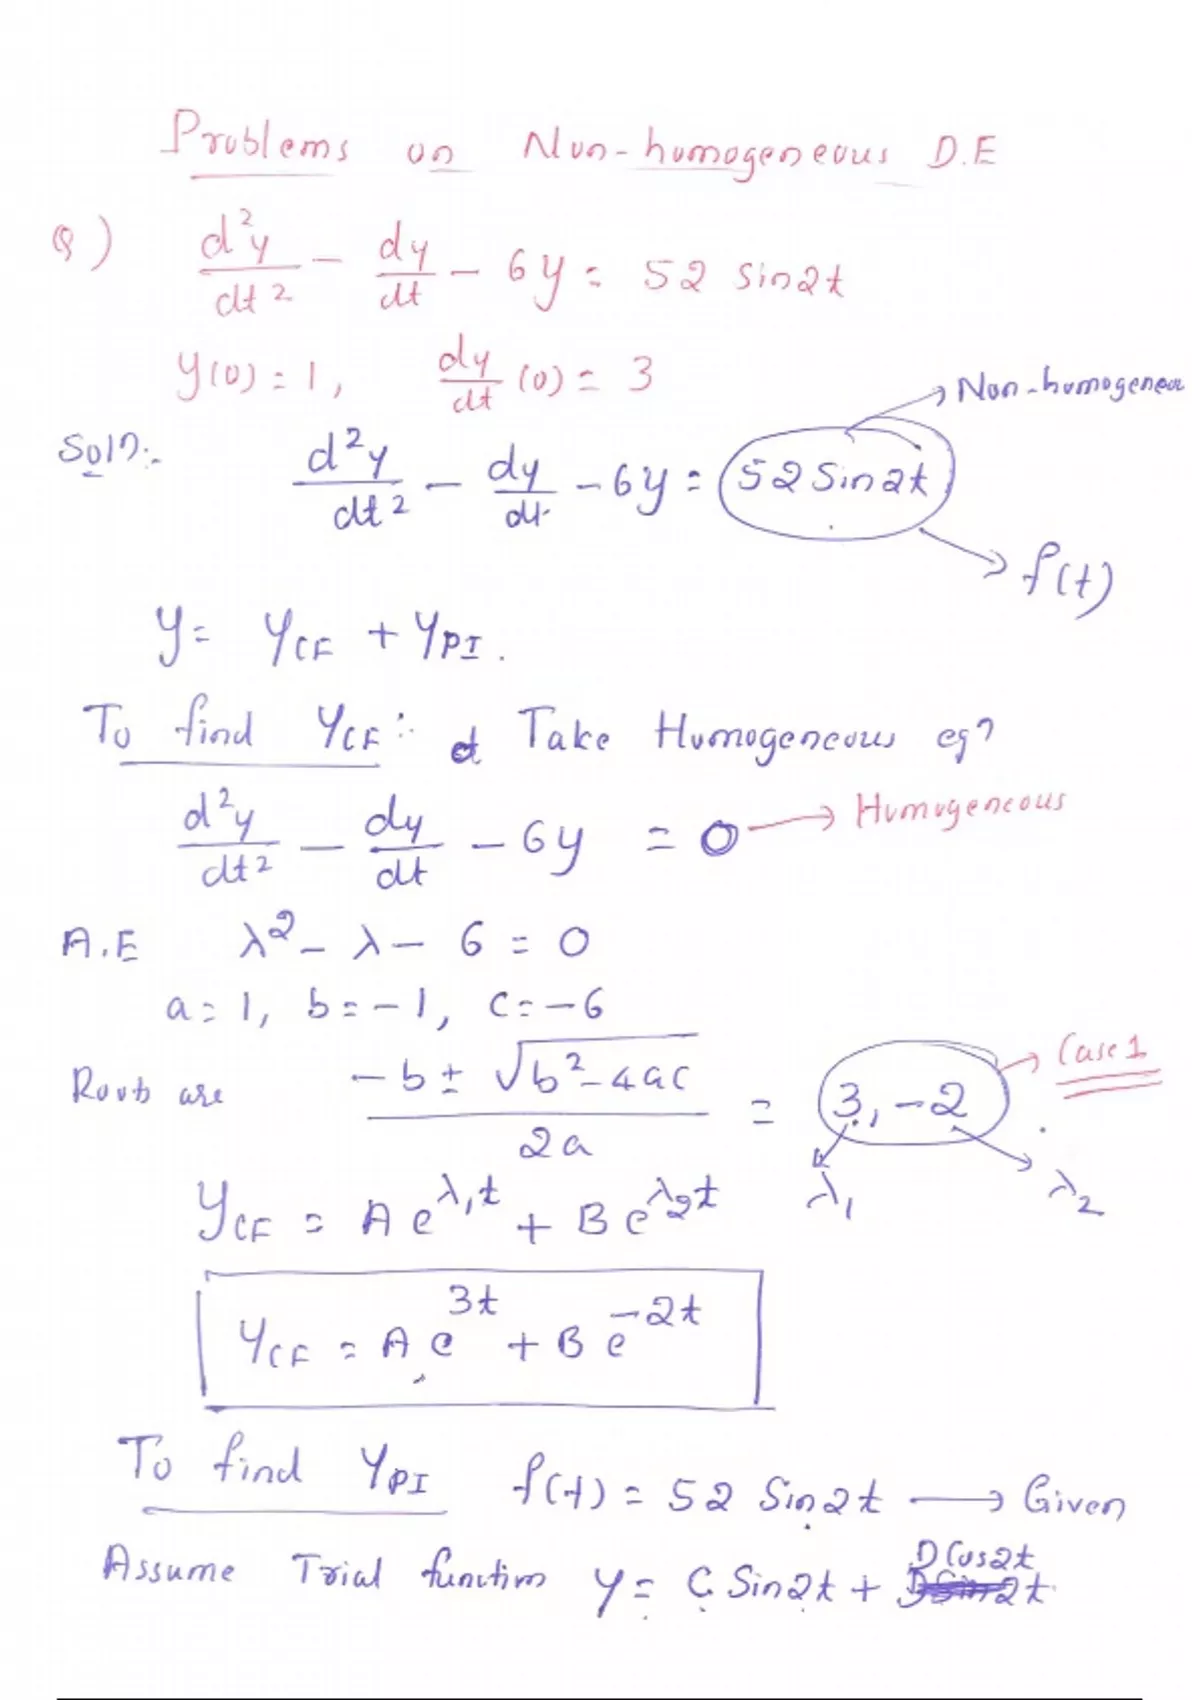 Problems on Non-homogeneous D.E
Q) d²y/dt² - dy/dt - 6y = 52 sin2t
y(0) = 1, dy/dt (0) = 3
Soln:-
d²y/dt² - dy/dt - 6y = 52 Sin2t → Non-homogeneou
→ f(t)
y = yCF + yPI.
To find yCF :- Take Homogeneous eqn
d²y/dt² - dy/dt - 6y = 0 → Homogeneous
A.E λ² - λ - 6 = 0
a = 1, b = -1, c = -6
Roots are (-b ± √(b² - 4ac))/2a = 3, -2 → Case 1
λ₁ λ₂
yCF = A e^λ₁t + B e^λ₂t
yCF = A e^3t + B e^-2t
To find yPI f(t) = 52 Sin2t → Given
Assume Trial function y = C Sin2t + D Cos2t